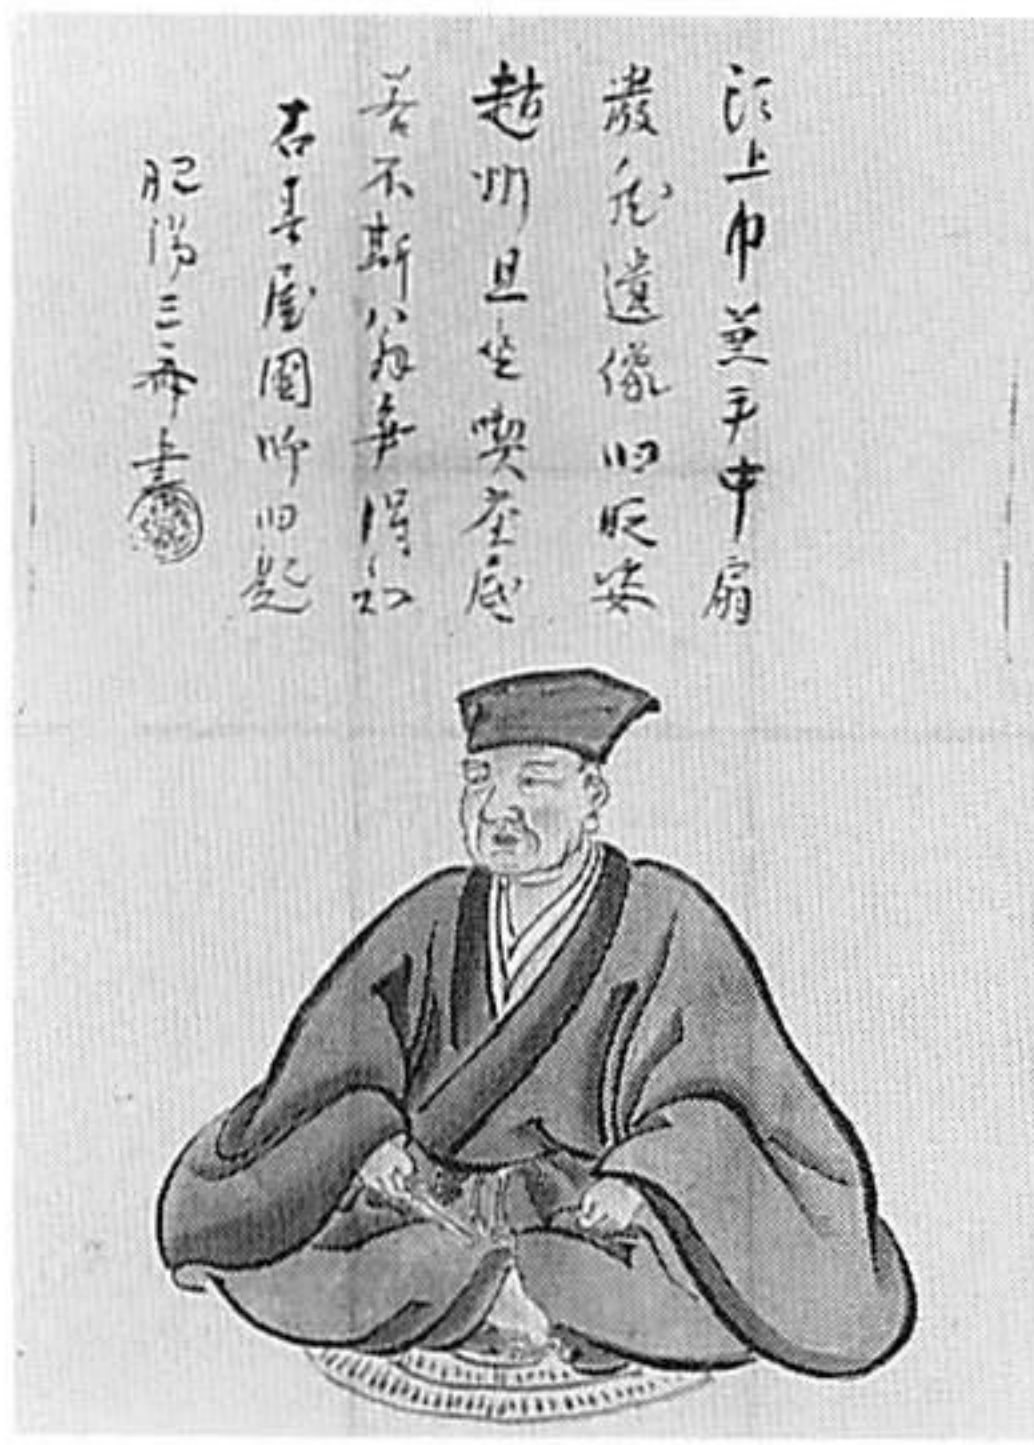 頭上巾兮手中扇
儼然遺像旧時姿
趙州且坐喫茶底
若不斯翁争得知
右春屋國師旧題
肥陽三斎書